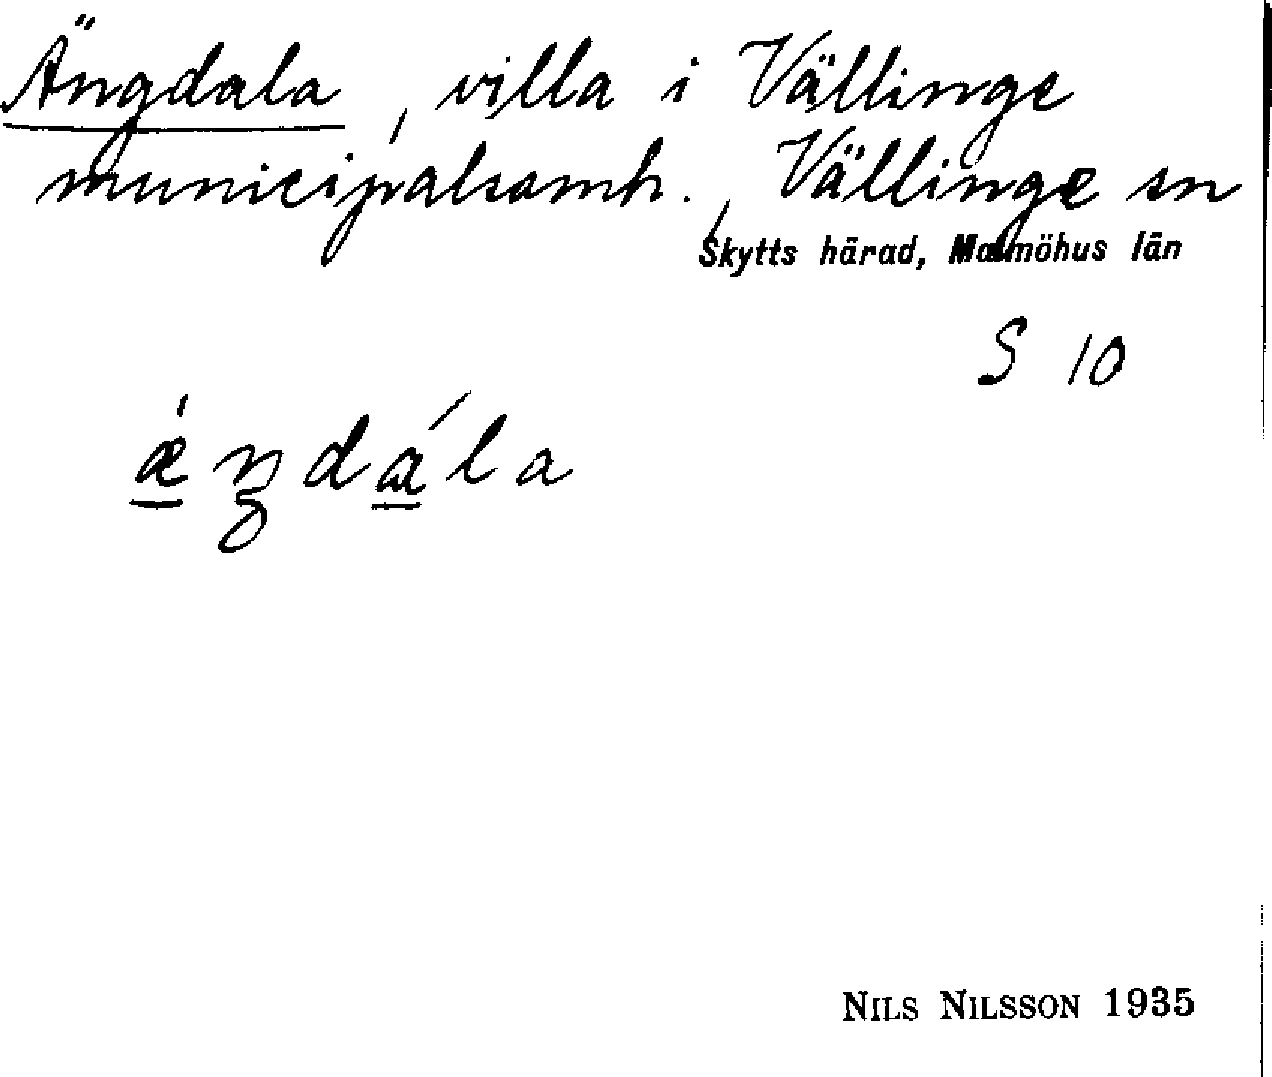 Ängdala, villa i Vällinge
municipalsamh., Vällinge sn
Skytts härad, Malmöhus län
S 10
NILS NILSSON 1935